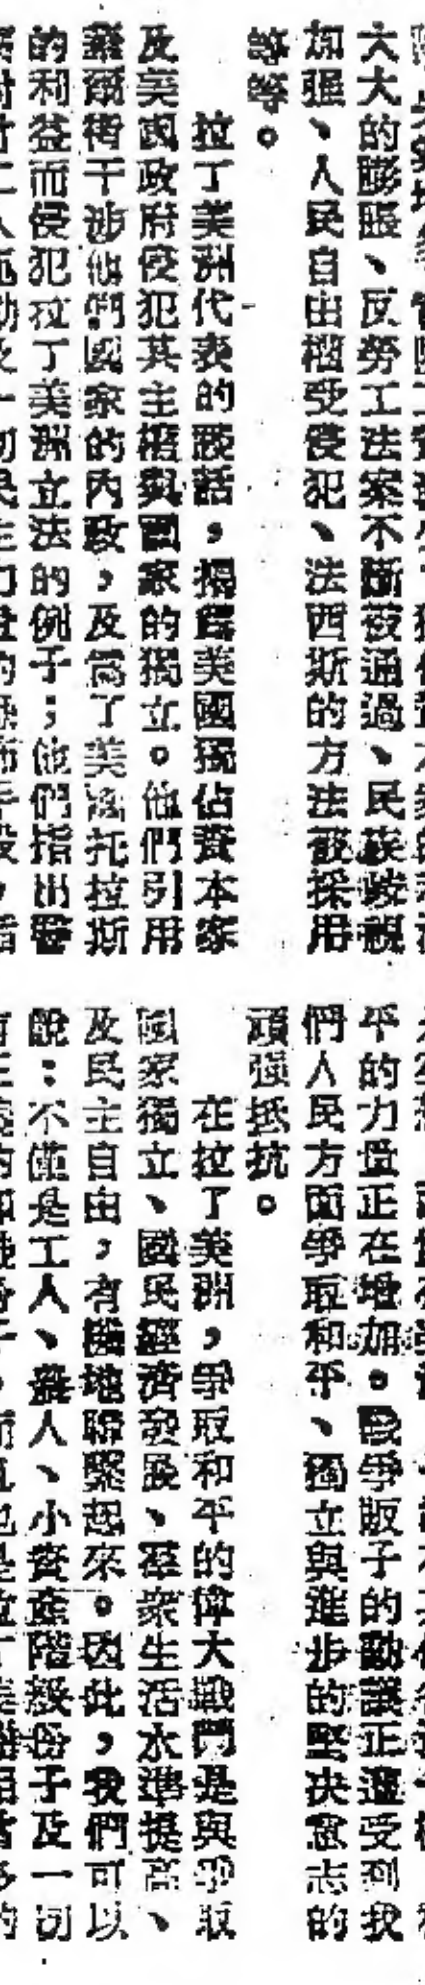 大大的膨脹、反勞工法案不斷被通過、民族歧視
加强、人民自由權受侵犯、法西斯的方法被採用
等等。
拉丁美洲代表的談話，揭露美國獨佔資本家
及美國政府侵犯其主權與國家的獨立。他們引用
華爾街干涉他們國家的內政，及爲了美國托拉斯
的利益而侵犯拉丁美洲立法的例子；他們指出
平的力量正在增加。戰爭販子的動議正遭受到我
們人民方面爭取和平、獨立與進步的堅決意志的
頑强抵抗。
在拉丁美洲，爭取和平的偉大戰鬥是與爭取
國家獨立、國民經濟發展、羣衆生活水準提高、
及民主自由，有機地聯緊起來。因此，我們可以
說：不僅是工人、農人、小資產階級份子及一切